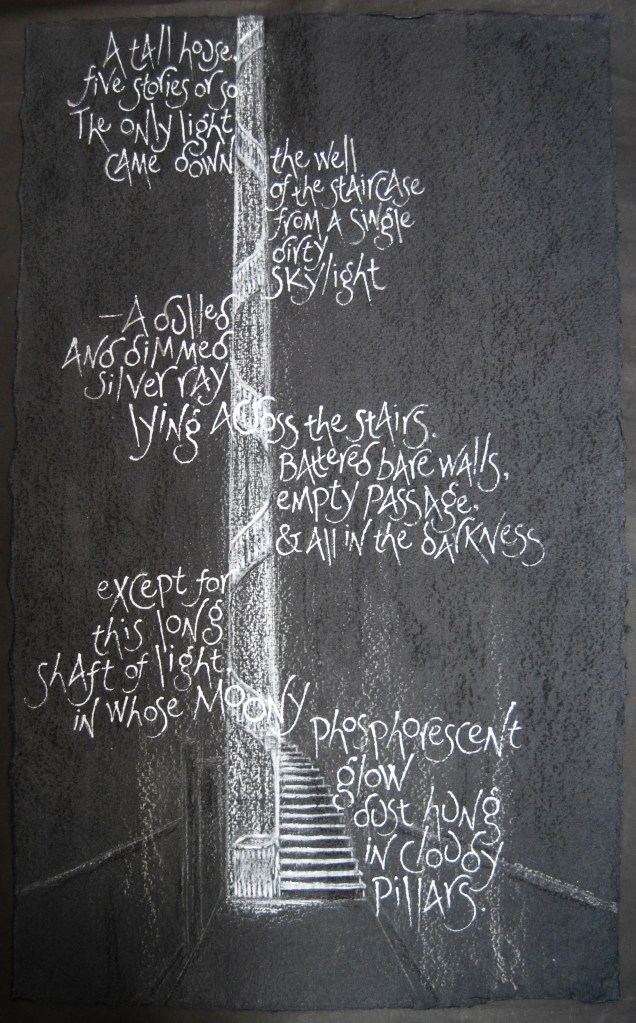 A tall house,
five stories or so
The only light
came down
the well
of the staircase
from a single
dirty
skylight
—A dulled
and dimmed
silver ray
lying across the stairs.
Battered bare walls,
empty passage,
& all in the darkness
except for
this long
shaft of light,
in whose moony
phosphorescent
glow
dust hung
in cloudy
pillars.